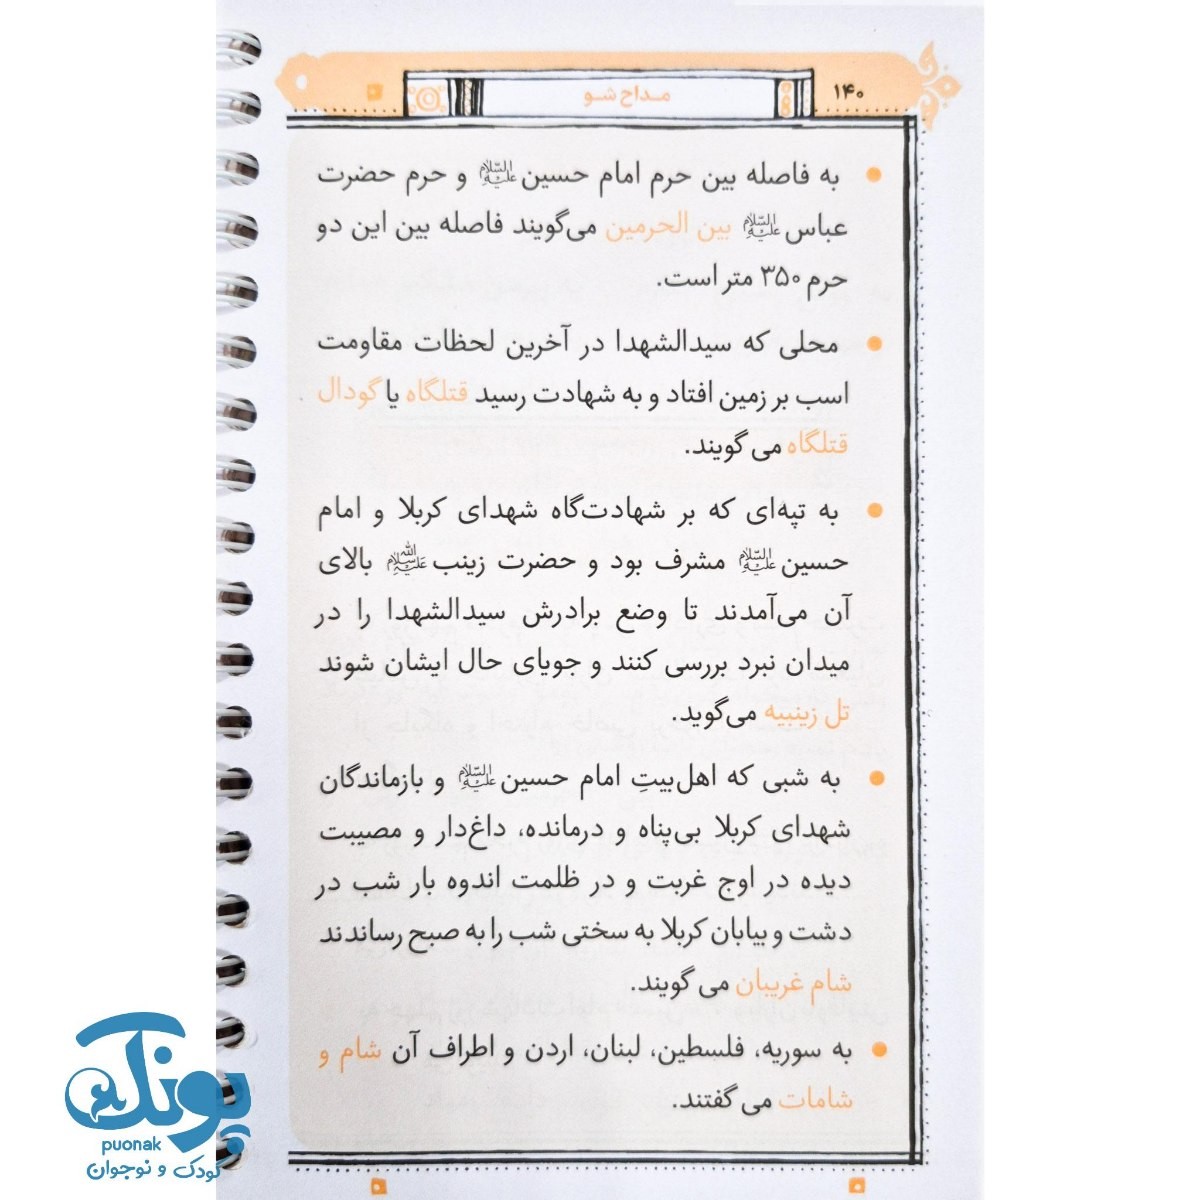 ۱۴۰
مداح شو
به فاصله بین حرم امام حسین علیه‌السلام و حرم حضرت
عباس علیه‌السلام بین الحرمین می‌گویند فاصله بین این دو
حرم ۳۵۰ متر است.
محلی که سیدالشهدا در آخرین لحظات مقاومت
اسب بر زمین افتاد و به شهادت رسید قتلگاه یا گودال
قتلگاه می گویند.
به تپه‌ای که بر شهادت‌گاه شهدای کربلا و امام
حسین علیه‌السلام مشرف بود و حضرت زینب سلام‌الله‌علیها بالای
آن می‌آمدند تا وضع برادرش سیدالشهدا را در
میدان نبرد بررسی کنند و جویای حال ایشان شوند
تل زینبیه می‌گوید.
به شبی که اهل‌بیتِ امام حسین علیه‌السلام و بازماندگان
شهدای کربلا بی‌پناه و درمانده، داغ‌دار و مصیبت
دیده در اوج غربت و در ظلمت اندوه بار شب در
دشت و بیابان کربلا به سختی شب را به صبح رساندند
شام غریبان می گویند.
به سوریه، فلسطین، لبنان، اردن و اطراف آن شام و
شامات می گفتند.
پونک
puonak
کودک و نوجوان